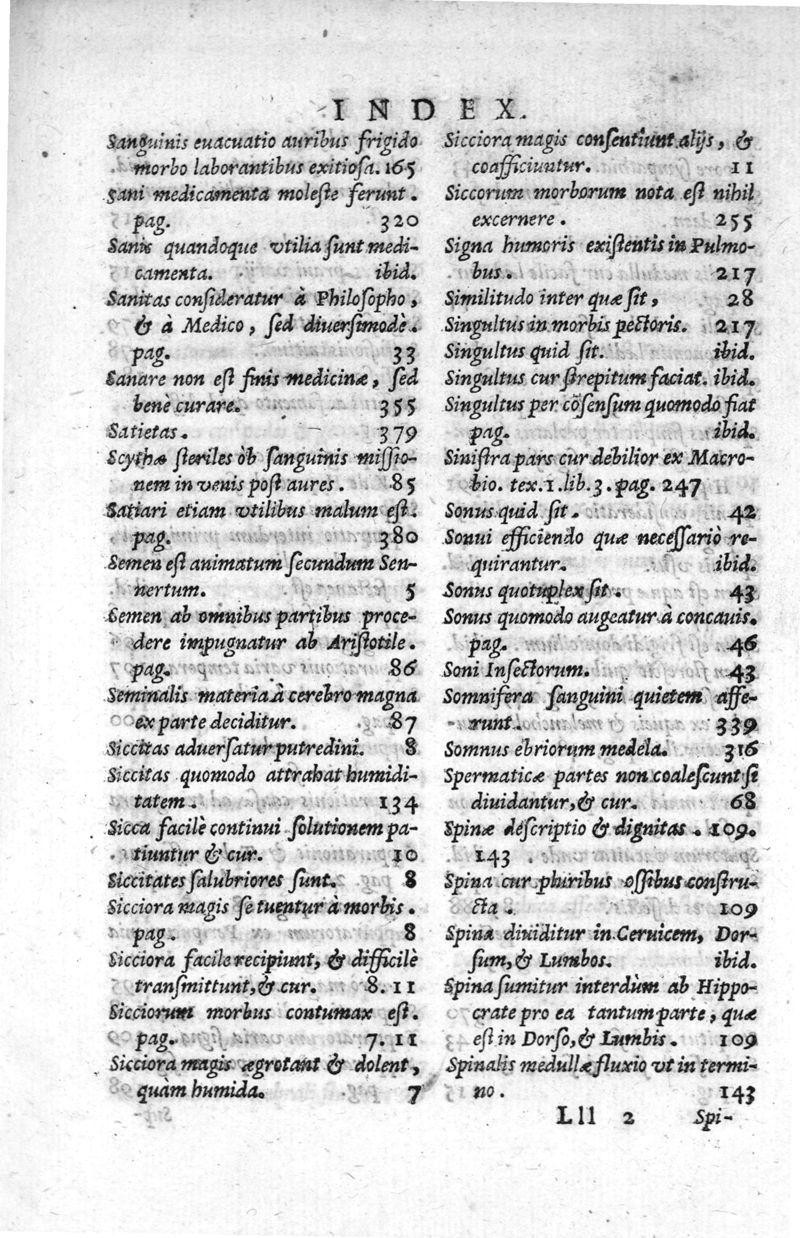 INDEX.
Sanguinis euacuatio auribus frigido
morbo laborantibus exitiosa. 165
Sani medicamenta molestè ferunt.
pag. 320
Sanis quandoque vtilia sunt medi-
camenta. ibid.
Sanitas consideratur à Philosopho,
& à Medico, sed diuersimodè.
pag. 33
Sanare non est finis medicinæ, sed
benè curare. 355
Satietas. 379
Scythæ steriles òb sanguinis missio-
nem in venis post aures. 85
Satiari etiam vtilibus malum est.
pag. 380
Semen est animatum secundum Sen-
nertum. 5
Semen ab omnibus partibus proce-
dere impugnatur ab Aristotile.
pag. 86
Seminalis materia à cerebro magna
ex parte deciditur. 87
Siccitas aduersatur putredini. 8
Siccitas quomodo attrahat humidi-
tatem. 134
Sicca facilè continui solutionem pa-
tiuntur & cur. 10
Siccitates salubriores sunt. 8
Sicciora magis se tuentur à morbis.
pag. 8
Sicciora facile recipiunt, & difficilè
transmittunt, & cur. 8. 11
Sicciorum morbus contumax est.
pag. 7. 11
Sicciora magis ægrotant & dolent,
quàm humida. 7
Sicciora magis consentiunt alijs, &
coafficiuntur. 11
Siccorum morborum nota est nihil
excernere. 255
Signa humoris existentis in Pulmo-
bus. 217
Similitudo inter quæ sit, 28
Singultus in morbis pectoris. 217
Singultus quid sit. ibid.
Singultus cur strepitum faciat. ibid.
Singultus per cōsensum quomodo fiat
pag. ibid.
Sinistra pars cur debilior ex Macro-
bio. tex. 1. lib. 3. pag. 247
Sonus quid sit. 42
Sonui efficiendo quæ necessariò re-
quirantur. ibid.
Sonus quotuplex sit. 43
Sonus quomodo augeatur à concauis.
pag. 46
Soni Insectorum. 43
Somnifera sanguini quietem affe-
runt. 339
Somnus ebriorum medela. 316
Spermaticæ partes non coalescunt si
diuidantur, & cur. 68
Spinæ descriptio & dignitas. 109.
143
Spina cur pluribus ossibus constru-
cta. 109
Spina diuiditur in Ceruicem, Dor-
sum, & Lumbos. ibid.
Spina sumitur interdùm ab Hippo-
crate pro ea tantum parte, quæ
est in Dorso, & Lumbis. 109
Spinalis medullæ fluxio vt in termi-
no. 143
Lll 2 Spi-